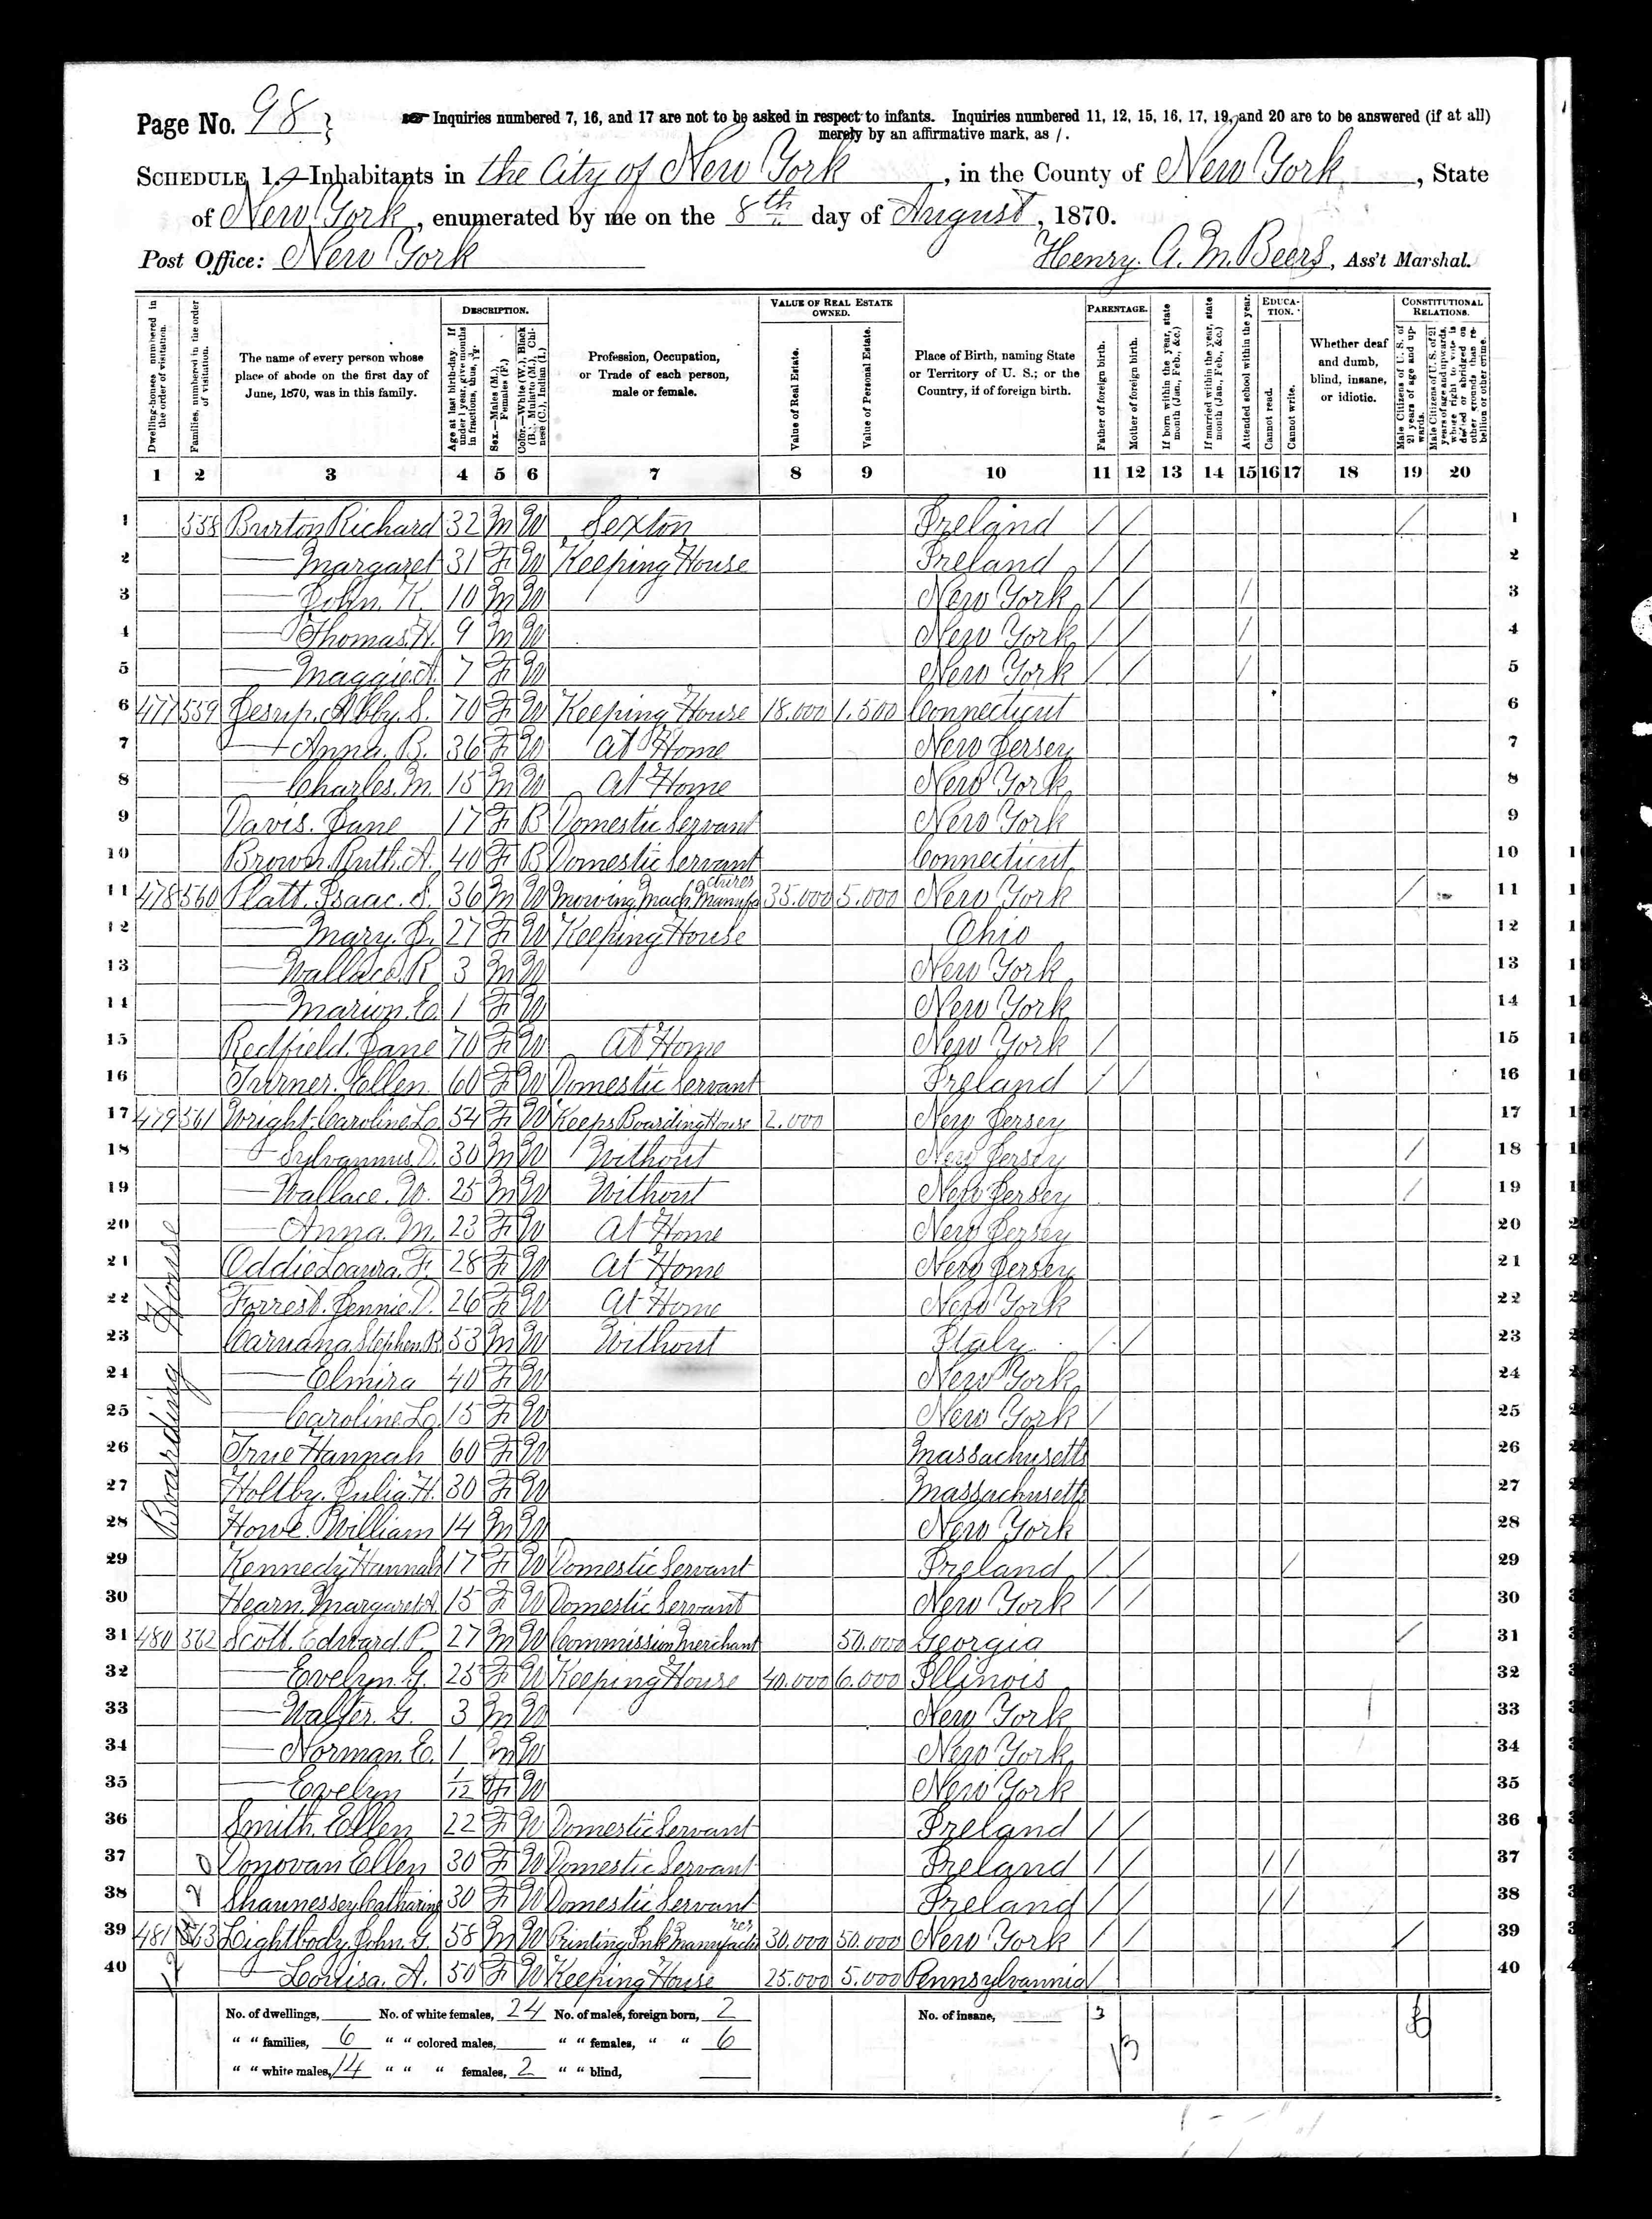 Page No. 98
Inquiries numbered 7, 16, and 17 are not to be asked in respect to infants. Inquiries numbered 11, 12, 15, 16, 17, 19, and 20 are to be answered (if at all)
merely by an affirmative mark, as /.
SCHEDULE 1.—Inhabitants in the City of New York, in the County of New York, State
of New York, enumerated by me on the 8th day of August, 1870.
Post Office: New York Henry. A. M. Beers, Ass't Marshal.
Dwelling-houses, numbered in the order of visitation.
Families, numbered in the order of visitation.
The name of every person whose place of abode on the first day of June, 1870, was in this family.
DESCRIPTION.
Age at last birth-day. If under 1 year, give months in fractions, thus, 3/12.
Sex.—Males (M.), Females (F.)
Color.—White (W.), Black (B.), Mulatto (M.), Chinese (C.), Indian (I.)
Profession, Occupation, or Trade of each person, male or female.
VALUE OF REAL ESTATE OWNED.
Value of Real Estate.
Value of Personal Estate.
Place of Birth, naming State or Territory of U. S.; or the Country, if of foreign birth.
PARENTAGE.
Father of foreign birth.
Mother of foreign birth.
If born within the year, state month (Jan., Feb., &c.)
If married within the year, state month (Jan., Feb., &c.)
Attended school within the year.
EDUCATION.
Cannot read.
Cannot write.
Whether deaf and dumb, blind, insane, or idiotic.
CONSTITUTIONAL RELATIONS.
Male Citizens of U. S. of 21 years of age and upwards.
Male Citizens of U. S. of 21 years of age and upwards, whose right to vote is denied or abridged on other grounds than rebellion or other crime.
1 2 3 4 5 6 7 8 9 10 11 12 13 14 15 16 17 18 19 20
1 558 Burton Richard 32 M W Sexton Ireland / / / 1
2 — Margaret 31 F W Keeping House Ireland / / 2
3 — John. K. 10 M W New York / / / 3
4 — Thomas. H. 9 M W New York / / / 4
5 — Maggie. A. 7 F W New York / / / 5
6 477 559 Jesup. Abby. S. 70 F W Keeping House 18.000 1.500 Connecticut 6
7 — Anna. B. 36 F W At Home New Jersey 7
8 — Charles. M. 15 M W At Home New York 8
9 Davis. Jane 17 F B Domestic Servant New York 9
10 Brown. Ruth. A. 40 F B Domestic Servant Connecticut 10
11 478 560 Platt. Isaac. S. 36 M W Mowing Mach. Manufactures 35.000 5.000 New York / 11
12 — Mary. J. 27 F W Keeping House Ohio 12
13 — Wallace. R 3 M W New York 13
14 — Marion. E. 1 F W New York 14
15 Redfield. Jane 70 F W At Home New York / 15
16 Turner. Ellen. 60 F W Domestic Servant Ireland / / 16
17 479 561 Wright. Caroline. L. 54 F W Keeps Boarding House 2.000 New Jersey 17
18 — Sylvannus D. 30 M W Without New Jersey / 18
19 — Wallace. W. 25 M W Without New Jersey / 19
20 — Anna. M. 23 F W At Home New Jersey 20
21 Oddie Laura. F. 28 F W At Home New Jersey 21
22 Forrest. Jennie. D. 26 F W At Home New York 22
23 Caruana Stephen. B. 53 M W Without Italy / / 23
24 — Elmira 40 F W New York 24
25 — Caroline. L. 15 F W New York / 25
26 True Hannah 60 F W Massachusetts 26
27 Holtby. Julia. H. 30 F W Massachusetts 27
28 Howe. William 14 M W New York 28
Boarding House
29 Kennedy Hannah 17 F W Domestic Servant Ireland / / / 29
30 Hearn. Margaret A. 15 F W Domestic Servant New York / / 30
31 480 562 Scott. Edward. P. 27 M W Commission Merchant 50.000 Georgia / 31
32 — Evelyn. G. 25 F W Keeping House 40.000 6.000 Illinois 32
33 — Walter. G. 3 M W New York 33
34 — Norman. E. 1 M W New York 34
35 — Evelyn 1/12 F W New York 35
36 Smith. Ellen 22 F W Domestic Servant Ireland / / 36
37 Donovan Ellen 30 F W Domestic Servant Ireland / / / / 37
38 Shaunessey Catharine 30 F W Domestic Servant Ireland / / / / 38
39 481 563 Lightbody. John. G. 58 M W Printing Ink Manufacturer 30.000 50.000 New York / / / 39
40 — Louisa. A. 50 F W Keeping House 25.000 5.000 Pennsylvannia / 40
No. of dwellings, No. of white females, 24 No. of males, foreign born, 2 No. of insane, 3
" " families, 6 " " colored males, " " females, " " 6
" " white males, 14 " " " females, 2 " " blind,
13